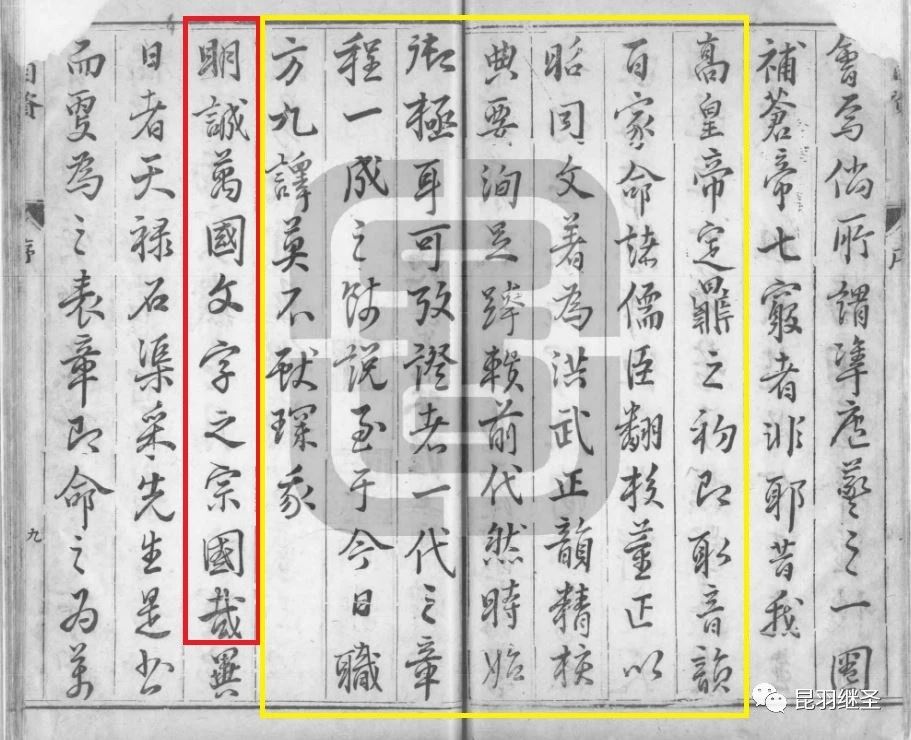 會焉倘所謂準庖羲之一圈
補蒼帝七竅者非耶昔我
高皇帝定鼎之初即取音韻
百家命諸儒臣翻校董正以
昭同文著為洪武正韻精核
典要洵足跨賴前代然時始
御極耳可攷證者一代之章
程一成之師說至于今日職
方九譯莫不獻琛我
明誠萬國文字之宗國哉異
日者天祿石渠采先生是書
而亟為之表章即命之為萬
目資
序
九
昆羽继圣